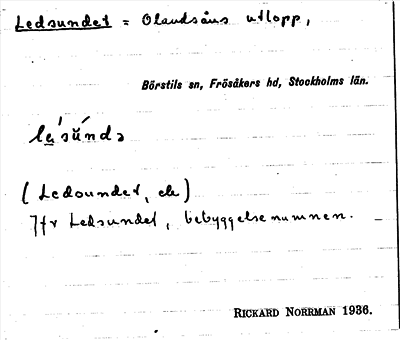 Ledsundet = Olandsåns utlopp,
Börstils sn, Frösåkers hd, Stockholms län.
(Ledoundet, ek)
Jfr Ledsundet, bebyggelsenumnen.
RICKARD NORRMAN 1936.